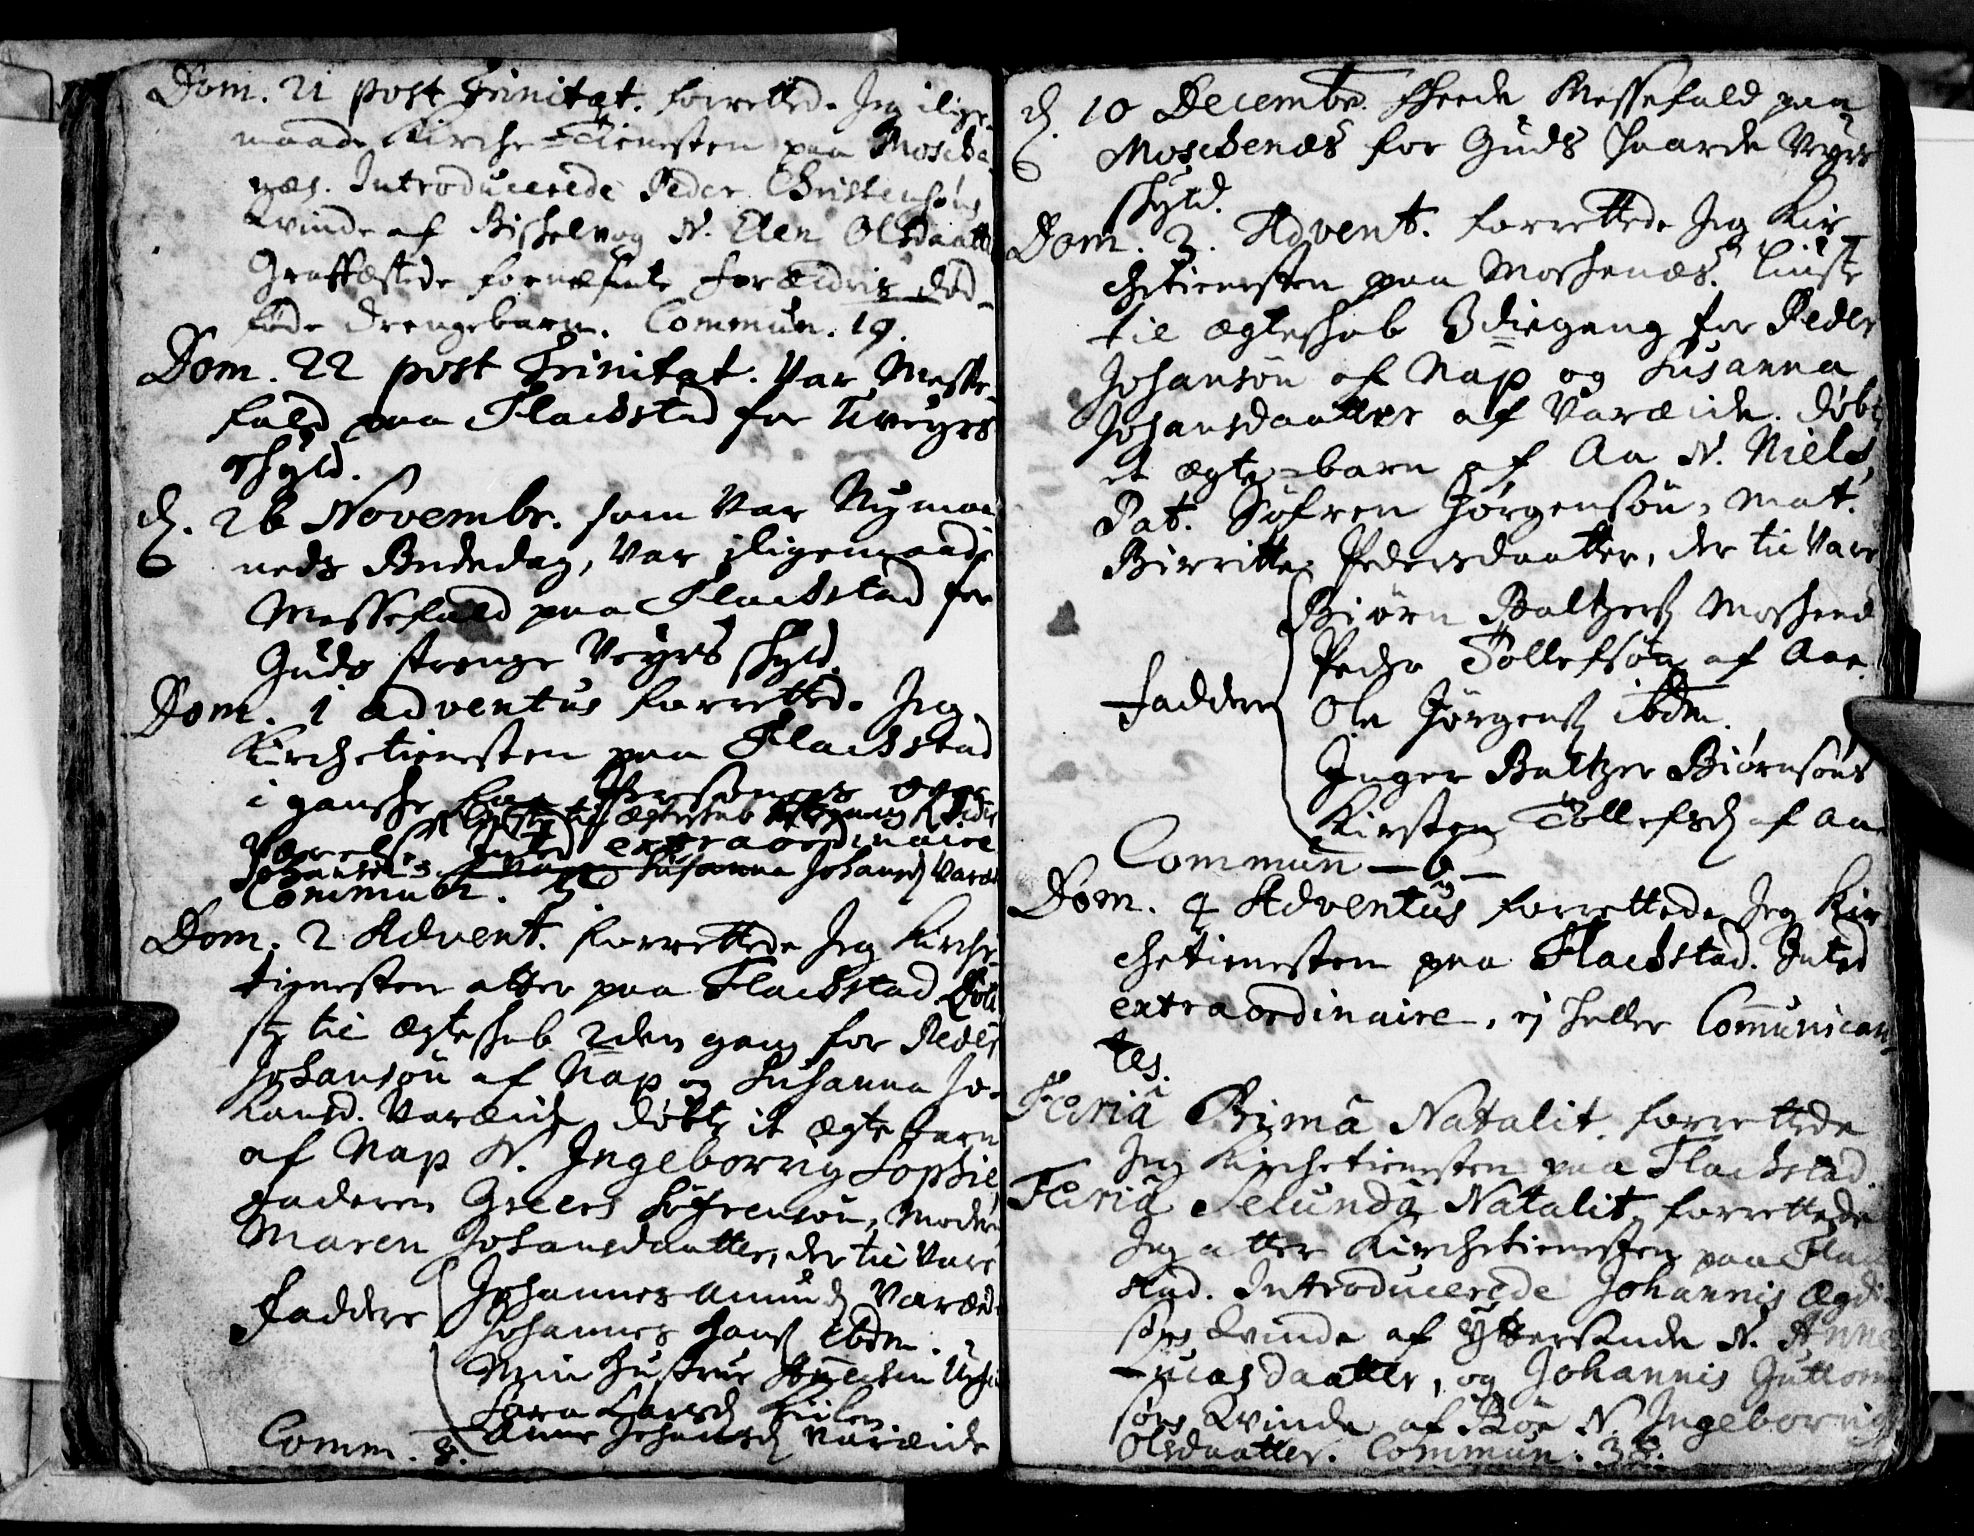 Dom. 21 post Trinitat. forrettede Jeg ilige-
maade Kirche-Tienesten paa Mosche-
næs. Introducerede Peder Christensøns
Kvinde af N. Elen Olsdaatter
Graffæstede fornæfnte Forældris død-
føde drengebarn. Commun. 19.
Dom. 22 post Trinitat. Var Messe-
fald paa Flackstad for Uveyrs
skyld.
d. 26 Novembr. som Var Nymaa-
neds Bededag, Var iligemaade
Messefald paa Flackstad for
Guds strenge Veyrs skyld.
Dom. 1 adventus forrettede Jeg
Kirchetienesten paa Flackstad
i ganske faa Persohners
Værelse. Inted extraordinaire
Johansøn af Nap og Susanna Johansd Varæide
Commun.
Dom. 2 Advent. forrettede Jeg Kirche-
tienesten atter paa Flackstad
til Ægteskab 2den gang for Peder
Johansøn af Nap og Susanna Jo-
hansd. Varæide, døbte it ægte barn
af Nap N. Ingeborrig Sophie
Faderen Greers Søfrensøn, Moderen
Maren Johansdaatter, der til Vare
Faddere Johannes Amund Varæide
Johannes Hans ibdm.
Min Hustrue
Sara Larsd Kiilen.
Anne Johansd Varæide
Comm. 8.
d. 10 Decembr. skeede Messefald paa
Moschenæs for Guds haarde Veyrs
skyld.
Dom. 3. Advent. forrettede Jeg Kir-
chetienesten paa Moskenæs. Liuste
til ægteskab 3diegang for Peder
Johansøn af Nap og Susanna
Johansdaatter af Varæide. døbt
et ægte-barn af Aa N. Niels,
Pat. Søfren Jørgensøn, Mat.
Birritte Pedersdaatter, der til Vare
Biørn Baltzers Moskenæs
Peder Tollefsøn af Aae
Faddere Ole Jørgens ibdm.
Inger Baltzer Biørnsøns
Kirsten Tollefsd af Aa
Commun — 6 —
Dom. 4 Adventus forrettede Jeg Kir-
chetienesten paa Flackstad. Inted
extraordinaire, ej heller Communican-
tes.
Feriâ Primâ Natalit. forrettede
Jeg Kirchetienesten paa Flackstad.
Feriâ Secundâ Natalit. forrettede
Jeg atter Kirchetienesten paa Flack-
stad. Introducerede Johannis Ægdi-
søns Kvinde af Yttersande N. Anne
Lucasdaatter, og Johannis Guttorm-
søns Kvinde af Bøe N. Ingeborrig
Olsdaatter. Commun. 38.